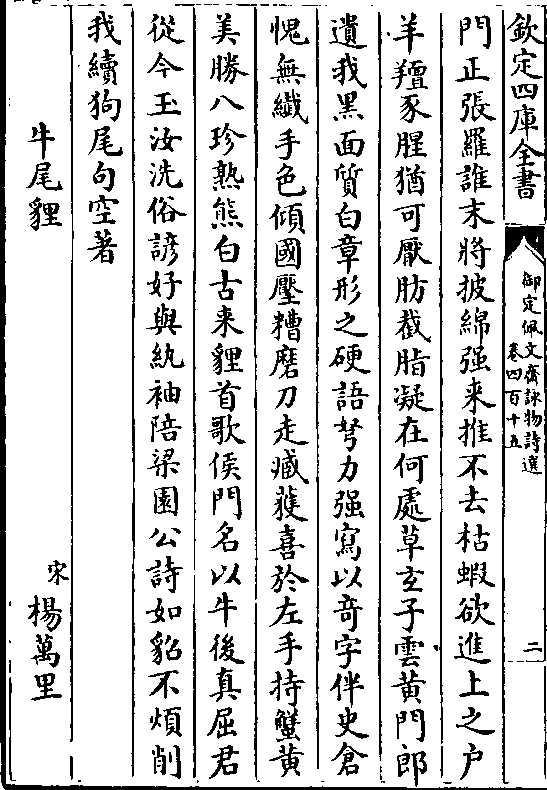 欽定四庫全書
御定佩文齋詠物詩選
卷四百十五
二
門正張羅誰末將披綿强来推不去枯蝦欲進上之户
羊羶豕腥猶可厭肪截脂凝在何處草玄子雲黄門郎
遺我黒面質白章形之硬語努力强寫以竒字伴史倉
愧無纖手色傾國壓糟磨刀走臧獲喜於左手持蟹黄
美勝八珍熟熊白古来貍首歌侯門名以牛後真屈君
從今玉汝洗俗諺好與紈袖陪梁園公詩如貂不煩削
我續狗尾句空著
牛尾貍
宋楊萬里